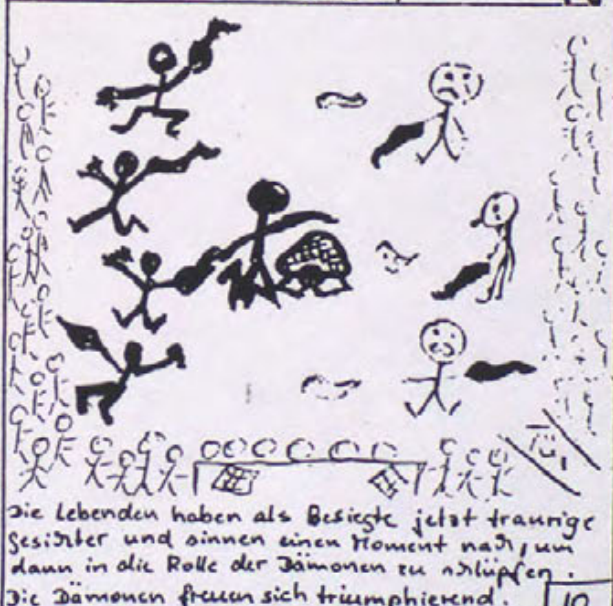 Die Lebenden haben als Besiegte jetzt traurige
Gesichter und sinnen einen Moment nach, um
dann in die Rolle der Dämonen zu schlüpfen.
Die Dämonen freuen sich triumphierend.
10